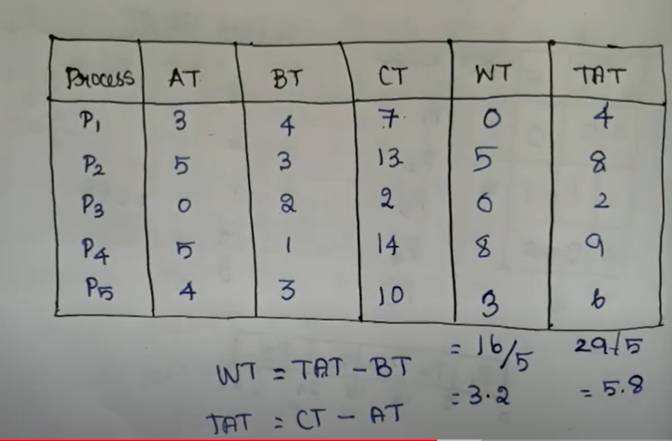 Process AT BT CT WT TAT
P1 3 4 7 0 4
P2 5 3 13 5 8
P3 0 2 2 0 2
P4 5 1 14 8 9
P5 4 3 10 3 6
= 16/5 29/5
WT = TAT - BT
= 3.2 = 5.8
TAT = CT - AT